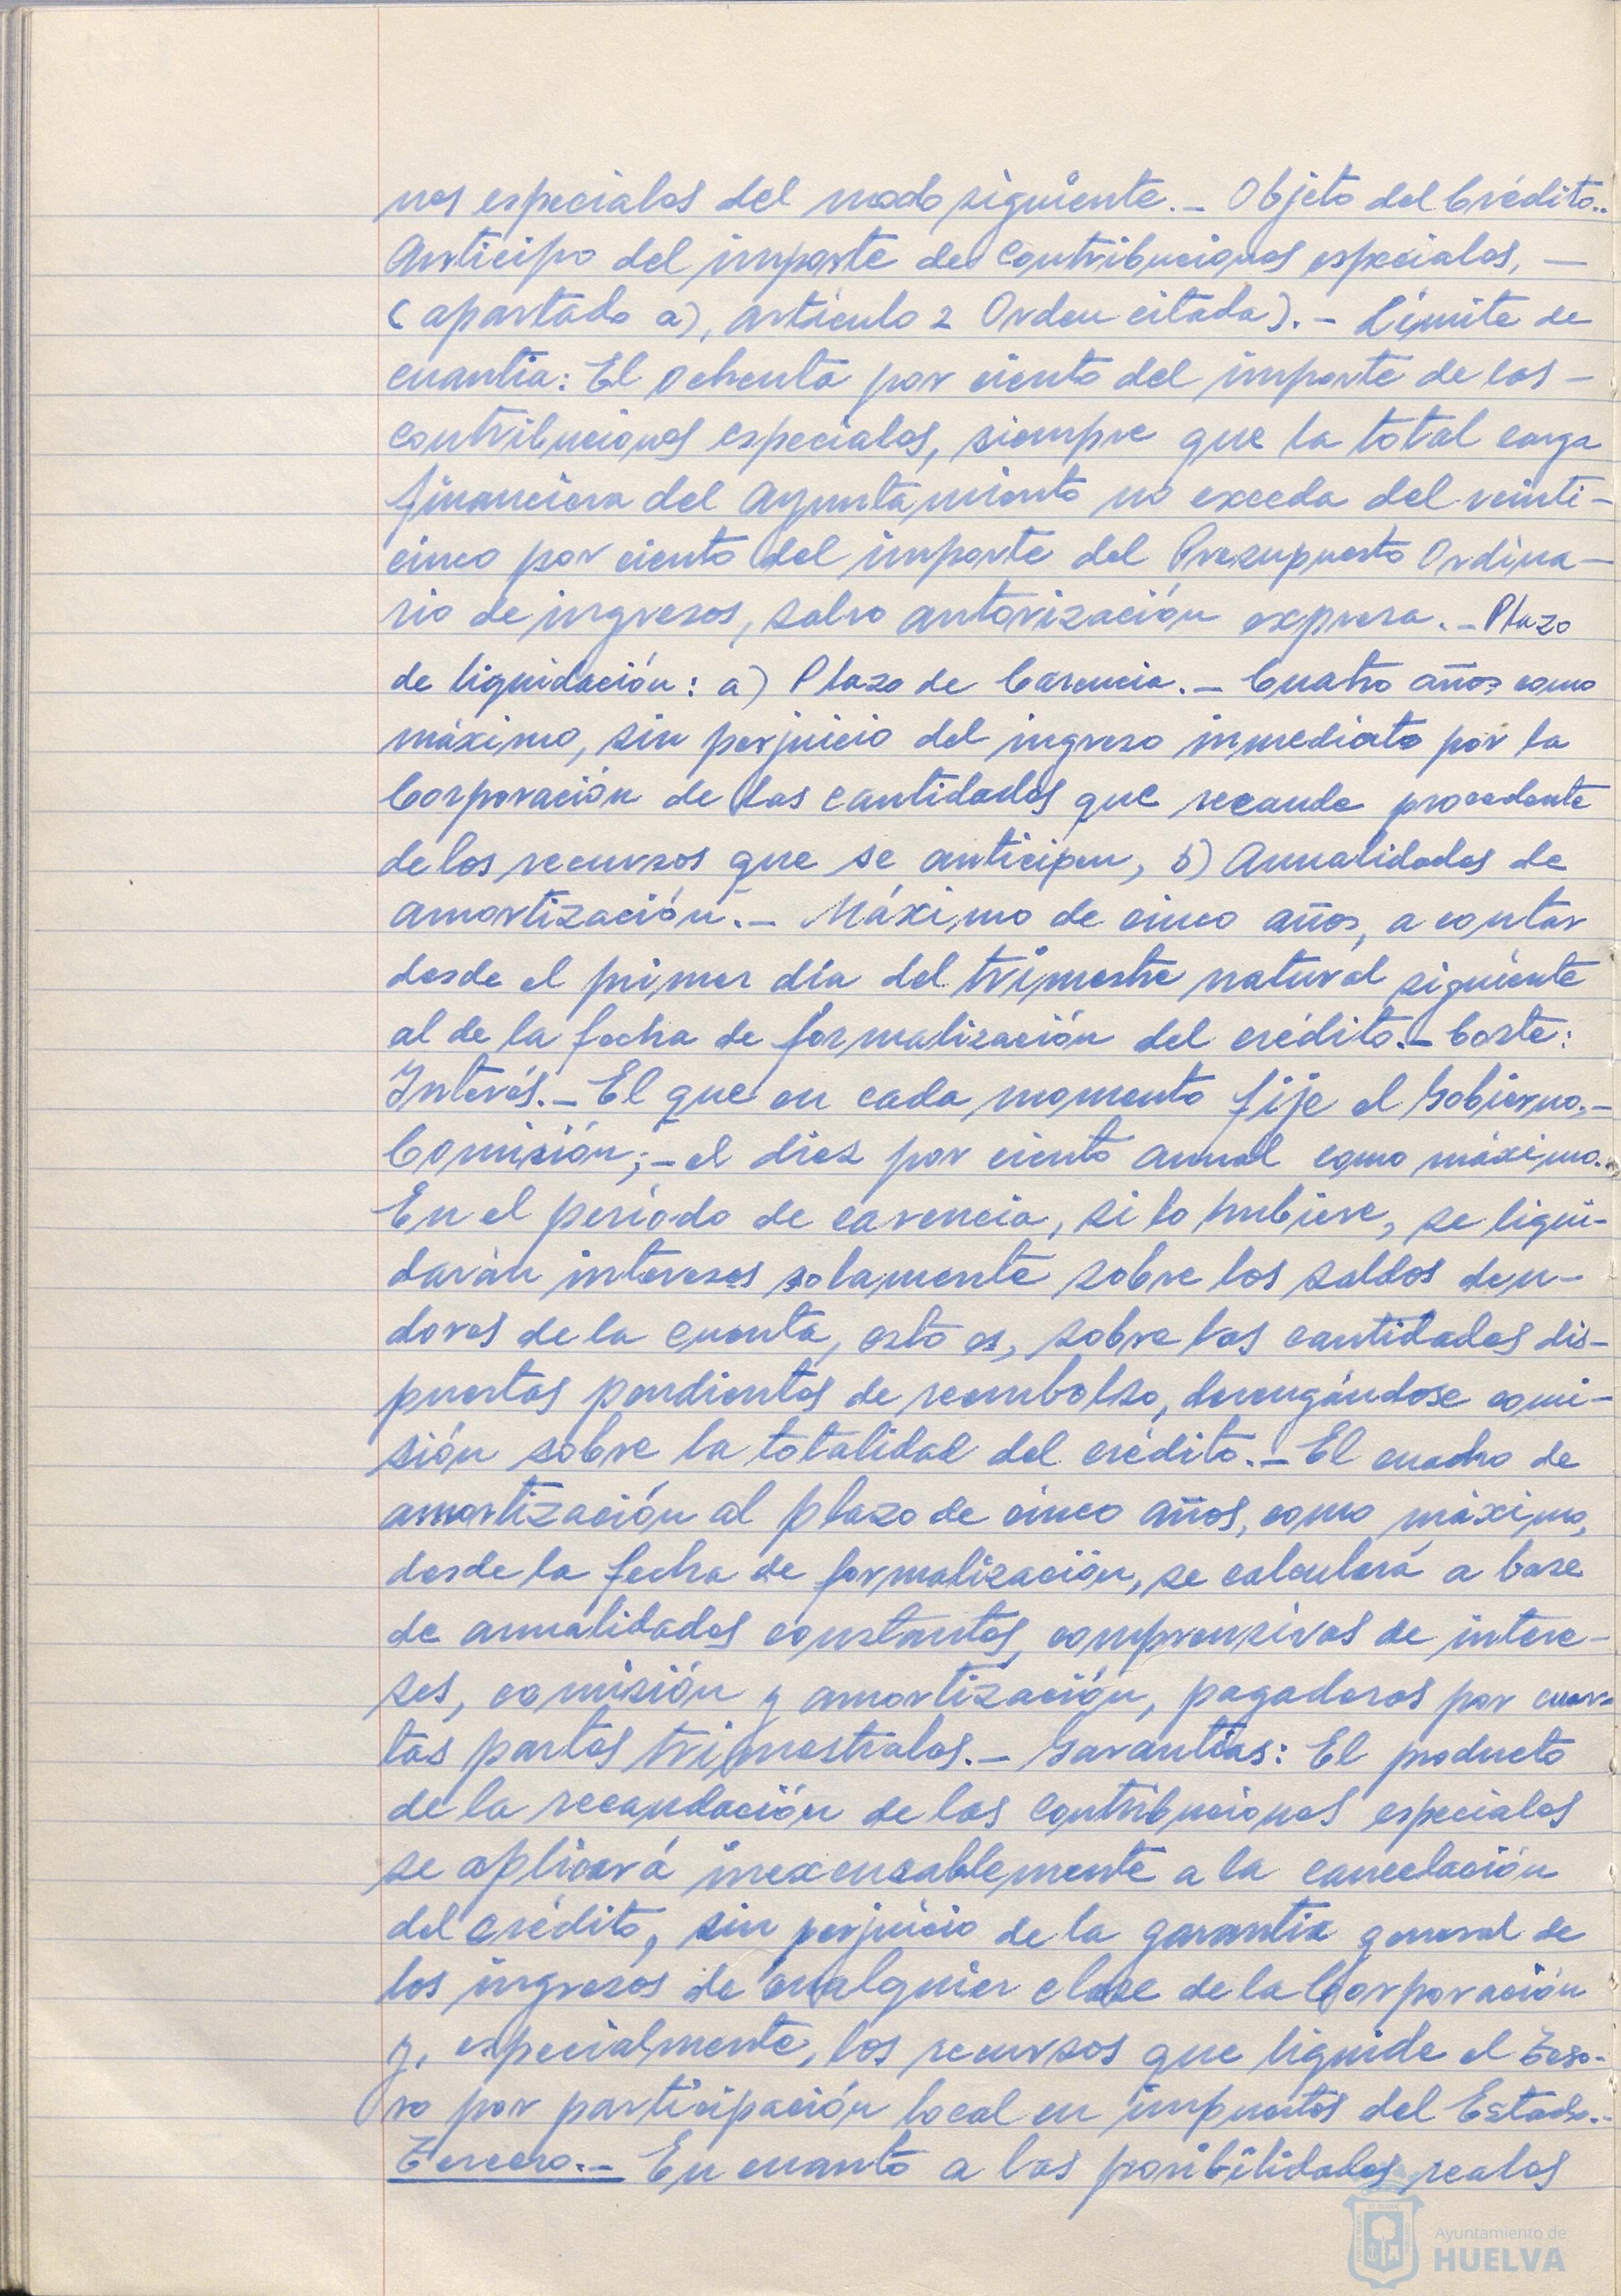 nes especiales del modo siguiente.- Objeto del Crédito.-
Anticipo del importe de contribuciones especiales, -
(apartado a), artículo 2 Orden citada).- Límite de
cuantía: El ochenta por ciento del importe de las -
contribuciones especiales, siempre que la total carga
financiera del Ayuntamiento no exceda del veinti-
cinco por ciento del importe del Presupuesto Ordina-
rio de ingresos, salvo autorización expresa.- Plazo
de liquidación: a) Plazo de Carencia.- Cuatro años como
máximo, sin perjuicio del ingreso inmediato por la
Corporación de las cantidades que recaude procedente
de los recursos que se anticipen, b) Anualidades de
amortización.- Máximo de cinco años, a contar
desde el primer día del trimestre natural siguiente
al de la fecha de formalización del crédito.- Coste:
Interés.- El que en cada momento fije el Gobierno.-
Comisión;- el diez por ciento anual como máximo.-
En el período de carencia, si lo hubiere, se liqui-
darán intereses solamente sobre los saldos deu-
dores de la cuenta, esto es, sobre las cantidades dis-
puestas pendientes de reembolso, devengándose comi-
sión sobre la totalidad del crédito.- El cuadro de
amortización al plazo de cinco años, como máximo,
desde la fecha de formalización, se calculará a base
de anualidades constantes, comprensivas de intere-
ses, comisión y amortización, pagaderas por cuar-
tas partes trimestrales.- Garantías: El producto
de la recaudación de las contribuciones especiales
se aplicará inexcusablemente a la cancelación
del crédito, sin perjuicio de la garantía general de
los ingresos de cualquier clase de la Corporación
y, especialmente, los recursos que liquide el Teso-
ro por participación local en impuestos del Estado.-
Tercero.- En cuanto a las posibilidades reales
Ayuntamiento de
HUELVA